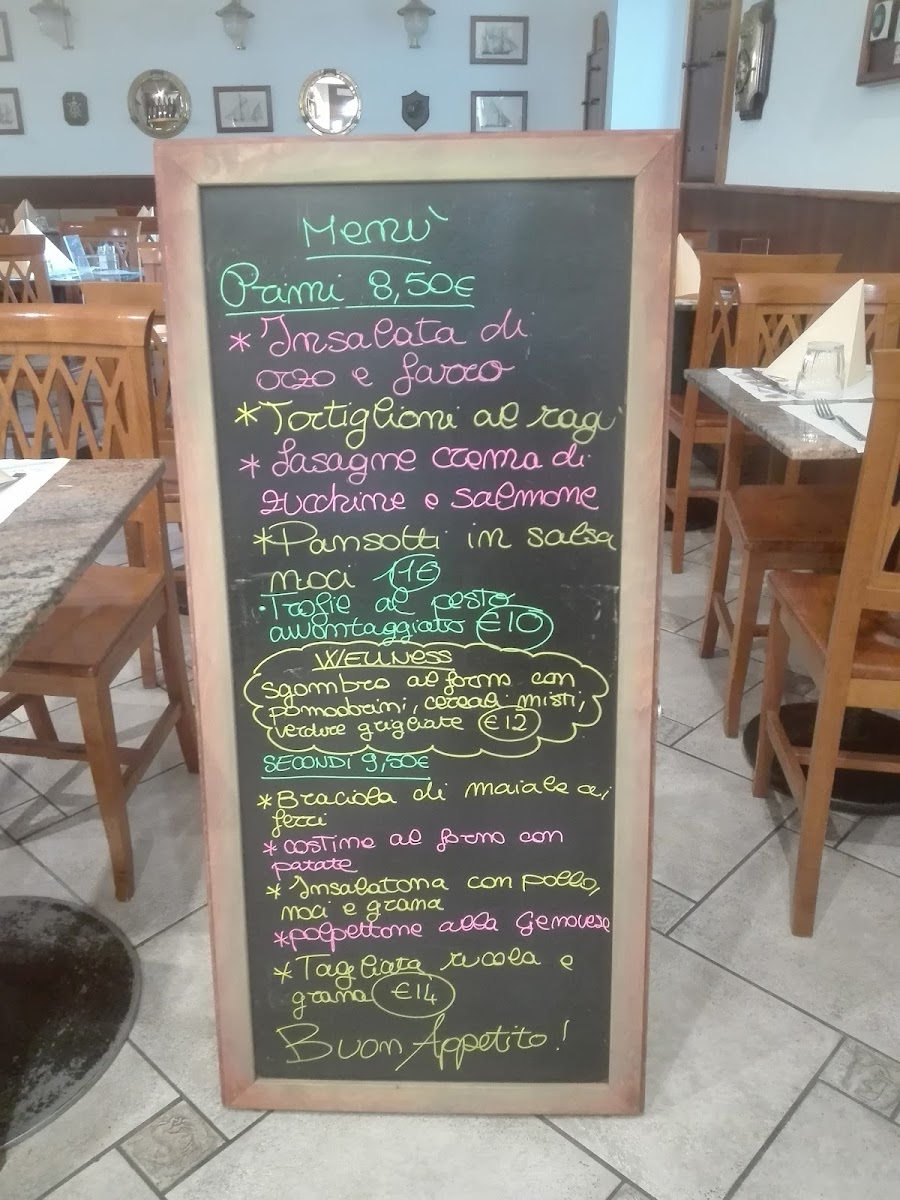 Menù
Primi 8,50€
* Insalata di
orzo e farro
* Tortiglioni al ragù
* Lasagne crema di
zucchine e salmone
* Pansotti in salsa
noci 11€
• Trofie al pesto
avvantaggiato €10
WELLNESS
sgombro al forno con
pomodorini, cereali misti,
verdure grigliate €12
SECONDI 9,50€
* Braciola di maiale ai
ferri
* costine al forno con
patate
* Insalatona con pollo,
noci e grana
* polpettone alla Genovese
* Tagliata rucola e
grana €14
Buon Appetito!